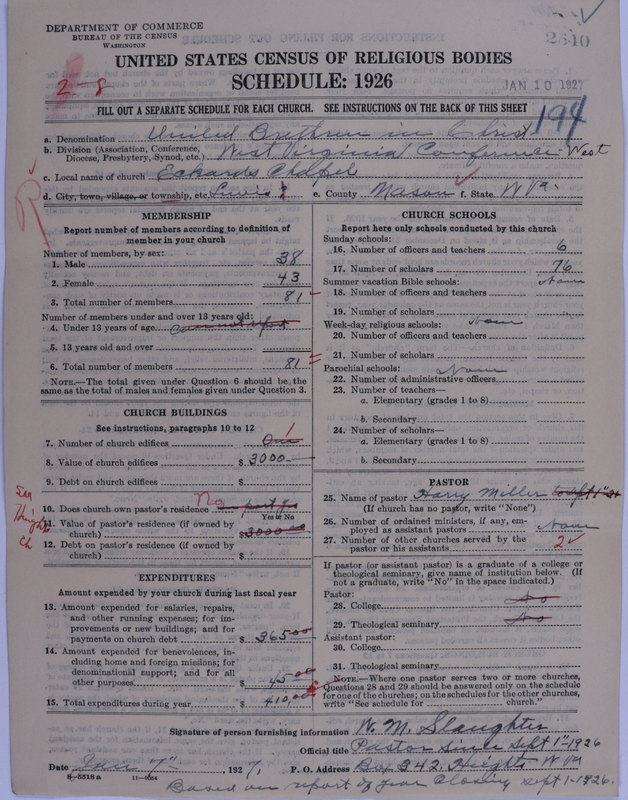 DEPARTMENT OF COMMERCE
BUREAU OF THE CENSUS
WASHINGTON
2640
UNITED STATES CENSUS OF RELIGIOUS BODIES
SCHEDULE: 1926
2-8
JAN 10 1927
FILL OUT A SEPARATE SCHEDULE FOR EACH CHURCH. SEE INSTRUCTIONS ON THE BACK OF THIS SHEET
194
a. Denomination United Brethren in Christ
b. Division (Association, Conference, Diocese, Presbytery, Synod, etc.) West Virginia Conference West
c. Local name of church Eckards Chapel
d. City, town, village, or township, etc. Lewis ? e. County Mason f. State W Va.
MEMBERSHIP
Report number of members according to definition of member in your church
Number of members, by sex:
1. Male 38
2. Female 43
3. Total number of members 81
Number of members under and over 13 years old:
4. Under 13 years of age Can not report
5. 13 years old and over
6. Total number of members 81
NOTE.—The total given under Question 6 should be the same as the total of males and females given under Question 3.
CHURCH BUILDINGS
See instructions, paragraphs 10 to 12
7. Number of church edifices One 1
8. Value of church edifices $ 3000
9. Debt on church edifices $
10. Does church own pastor's residence No
Yes or No
11. Value of pastor's residence (if owned by church) $ 3000 00
12. Debt on pastor's residence (if owned by church) $
See
Ch
EXPENDITURES
Amount expended by your church during last fiscal year
13. Amount expended for salaries, repairs, and other running expenses; for improvements or new buildings; and for payments on church debt $ 365 00
14. Amount expended for benevolences, including home and foreign missions; for denominational support; and for all other purposes $ 45 00
15. Total expenditures during year $ 410,00
CHURCH SCHOOLS
Report here only schools conducted by this church
Sunday schools:
16. Number of officers and teachers 6
17. Number of scholars 76
Summer vacation Bible schools: None
18. Number of officers and teachers
19. Number of scholars
Week-day religious schools: None
20. Number of officers and teachers
21. Number of scholars
Parochial schools: None
22. Number of administrative officers
23. Number of teachers—
a. Elementary (grades 1 to 8)
b. Secondary
24. Number of scholars—
a. Elementary (grades 1 to 8)
b. Secondary
PASTOR
25. Name of pastor Harry Miller to Sept 1st 26
(If church has no pastor, write "None")
26. Number of ordained ministers, if any, employed as assistant pastors None
27. Number of other churches served by the pastor or his assistants 2
If pastor (or assistant pastor) is a graduate of a college or theological seminary, give name of institution below. (If not a graduate, write "No" in the space indicated.)
Pastor:
28. College No
29. Theological seminary No
Assistant pastor:
30. College
31. Theological seminary
NOTE.—Where one pastor serves two or more churches, Questions 28 and 29 should be answered only on the schedule for one of the churches; on the schedules for the other churches, write "See schedule for church."
Signature of person furnishing information W. M. Slaughter
Official title Pastor since Sept 1st-1926
Date Jan 7th, 1927. P. O. Address Box 342. Heights W Va
8-5518a 11-9064
Based on report of year closing Sept 1-1926.